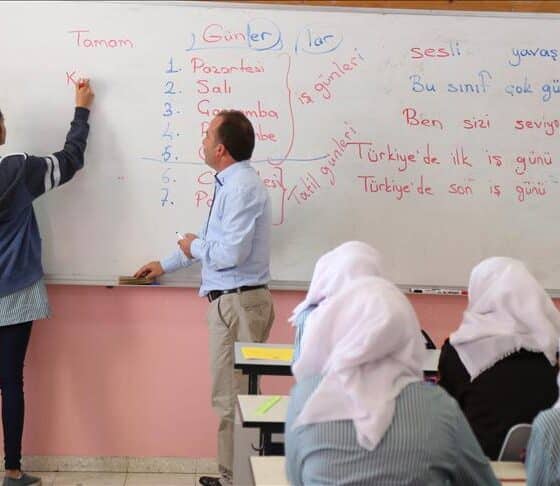 Tamam
Günler, lar
1. Pazartesi
2. Salı
3.
4.
5.
6.
7.
iş günleri
Tatil günleri
sesli yavaş
Bu sınıf çok
Ben sizi
Türkiye'de ilk iş günü
Türkiye'de son iş günü